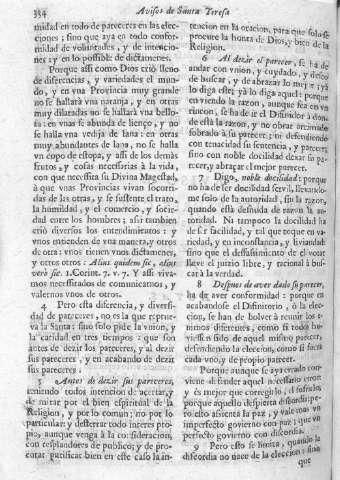 334 Avisos de Santa Teresa
midad en todo de pareceres en las elec-
ciones ; sino que aya en todo confor-
midad de voluntades , y de intencio-
nes : y en lo possible de dictamenes.
Porque assi como Dios criò lleno
de diferencias , y variedades el mun-
do, y en vna Provincia muy grande
no se hallarà vna naranja , y en otras
muy dilatadas no se hallarà vna bello-
ta : en vnas se abunda de lienço , y no
se halla vna vedija de lana : en otras
muy abundantes de lana , no se halla
vn copo de estopa, y assi de los demàs
frutos , y cosas necessarias à la vida,
con que necessita su Divina Magestad,
à que vnas Provincias vivan socorri-
das de las otras , y se sustente el trato,
la humildad , y el comercio , y socie-
dad entre los hombres ; assi tambien
criò diversos los entendimientos : y
vnos entienden de vna manera, y otros
de otra : vnos tienen vnos dictamenes,
y otros otros : Alius quidem sic, alius
verò sic. 1. Corint. 7. v. 7. Y assi viva-
mos necessitados de comunicarnos , y
valernos vnos de otros.
4 Pero esta diferencia , y diversi-
dad de pareceres , no es la que reprue-
va la Santa ; sino solo pide la vnion, y
la caridad en tres tiempos : que son
antes de dezir los pareceres, y al dezir
sus pareceres , y en acabando de dezir
sus pareceres.
5 Antes de dezir sus pareceres,
teniendo todos intencion de acertar, y
de mirar por el bien espiritual de la
Religion , y por lo comun ; no por lo
particular; y desterrar todo interes pro-
pio, aunque venga à la consideracion,
con resplandores de publico; y de pro-
curar purificar bien en este caso la in-
tencion en la oracion, para que solo se
procure la honra de Dios, y bien de la
Religion.
6 Al dezir el parecer, se ha de
andar con vnion, y cuydado, y deseo
de buscar, y de abrazar lo mejor, yà
lo diga este; yà lo diga aquel : porque
en viendo la razon, aunque sea en vn
rincon, se ha de ir el Difinidor à don-
de està la razon, y no obrar arrimado
sobrado à su parecer; ni defendiendo
con tenacidad su sentencia , y parecer;
sino con noble docilidad dexar su pa-
recer, y abraçar el mejor parecer.
7 Digo, noble docilidad: porque
no ha de ser docilidad servil, llevando-
me solo de la autoridad, sin la razon,
quando està desnuda de razon la au-
toridad. Ni tampoco la docilidad ha
de ser facilidad, y tal que toque en va-
riedad, y en inconstancia, y liviandad;
sino que el dessasimiento de el votar
lleve el juizio libre, y racional à bus-
car à la verdad.
8 Despues de aver dado su parecer,
ha de aver conformidad : porque en
acabandose el Difinitorio, ò la elec-
cion, se han de bolver à reunir los a-
nimos diferentes, como si todo hu-
viesse sido de aquel mismo parecer,
defendiendo la eleccion, como si fuera
cada vno, y de propio parecer.
Porque aunque se aya errado con-
viene defender aquel necessario error,
y es mejor que corregirlo, el sufrirlo;
porque aquello despierta discordia; pe-
ro esto assienta la paz, y vale mas vn
imperfecto govierno con paz; que vn
perfecto govierno con discordia.
9 Pero esto se limita, quando la
discordia no nace de la eleccion : sino
que